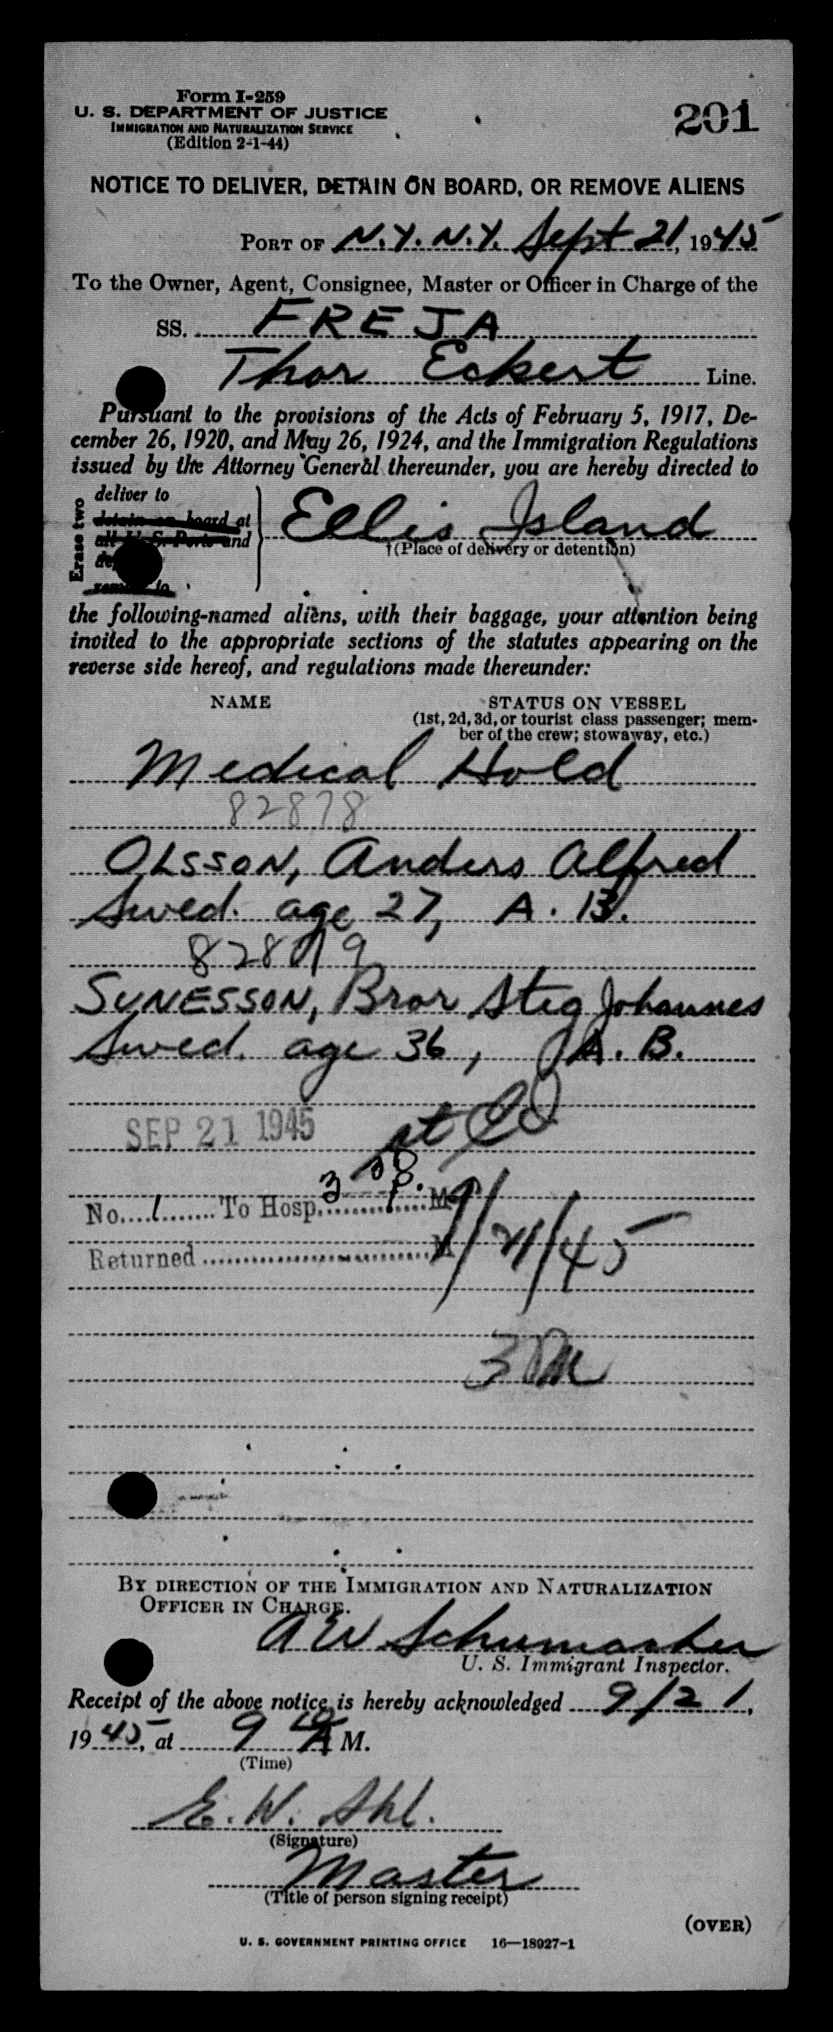 Form I-259
U. S. DEPARTMENT OF JUSTICE
IMMIGRATION AND NATURALIZATION SERVICE
(Edition 2-1-44)
201
NOTICE TO DELIVER, DETAIN ON BOARD, OR REMOVE ALIENS
PORT OF N.Y. N.Y. Sept 21, 1945
To the Owner, Agent, Consignee, Master or Officer in Charge of the
SS. FREJA
Thor Eckert Line.
Pursuant to the provisions of the Acts of February 5, 1917, De-
cember 26, 1920, and May 26, 1924, and the Immigration Regulations
issued by the Attorney General thereunder, you are hereby directed to
Erase two
deliver to
detain on board at
all U. S. Ports and
remove to
Ellis Island
†(Place of delivery or detention)
the following-named aliens, with their baggage, your attention being
invited to the appropriate sections of the statutes appearing on the
reverse side hereof, and regulations made thereunder:
NAME STATUS ON VESSEL
(1st, 2d, 3d, or tourist class passenger; mem-
ber of the crew; stowaway, etc.)
Medical Hold
82878
OLSSON, Anders Alfred
Swed. age 27, A. B.
82879
SUNESSON, Bror Stig Johannes
Swed. age 36, A. B.
SEP 21 1945
No. 1 To Hosp. 3 P. M
Returned M
9/21/45
3 PM
BY DIRECTION OF THE IMMIGRATION AND NATURALIZATION
OFFICER IN CHARGE.
A W Schumacher
U. S. Immigrant Inspector.
Receipt of the above notice is hereby acknowledged 9/21,
1945, at 9 A M.
(Time)
E. W.
(Signature)
Master
(Title of person signing receipt)
(OVER)
U. S. GOVERNMENT PRINTING OFFICE 16—18027-1